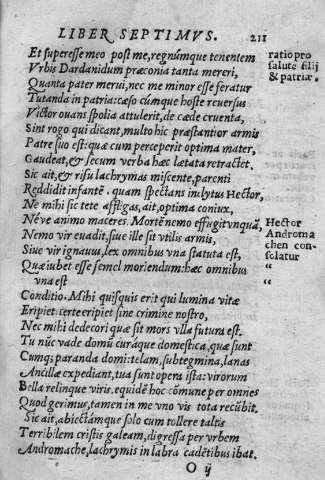 LIBER SEPTIMVS. 211
Et superesse meo post me, regnúmque tenentem
Vrbis Dardanidum præconia tanta mereri,
Quanta pater merui, nec me minor esse feratur
Tutanda in patria: cæso cùmque hoste reuersus
Victor ouans spolia attulerit, de cæde cruenta,
Sint rogo qui dicant, multo hic præstantior armis
Patre suo est: quæ cum perceperit optima mater,
Gaudeat, & secum verba hæc lætata retractet.
Sic ait, & risu lachrymas miscente, parenti
Reddidit infantē. quam spectans inclytus Hector,
Ne mihi sic tete affligas, ait, optima coniux,
Néve animo maceres. Mortē nemo effugit vnquã,
Nemo vir euadit, siue ille sit vtilis armis,
Siue vir ignauus, lex omnibus vna statuta est,
Quæ iubet esse semel moriendum: hæc omnibus
vna est
Conditio. Mihi quisquis erit qui lumina vitæ
Eripiet: certe eripiet sine crimine nostro,
Nec mihi dedecori quæ sit mors vlla futura est.
Tu nūc vade domū curáque domestica, quæ sunt
Cumq; paranda domi: telam, subtegmina, lanas
Ancillæ expediant, tua sunt opera ista: virorum
Bella relinque viris. equidē hoc cōmune per omnes
Quod gerimus, tamen in me vno vis tota recūbit.
Sic ait, abiectámque solo cum tollere taltis
Terribilem cristis galeam, digressa per vrbem
Andromache, lachrymis in labra cadētibus ibat.
O ij
ratio pro
salute filij
& patriæ.
Hector
Androma
chen con-
solatur
“
“